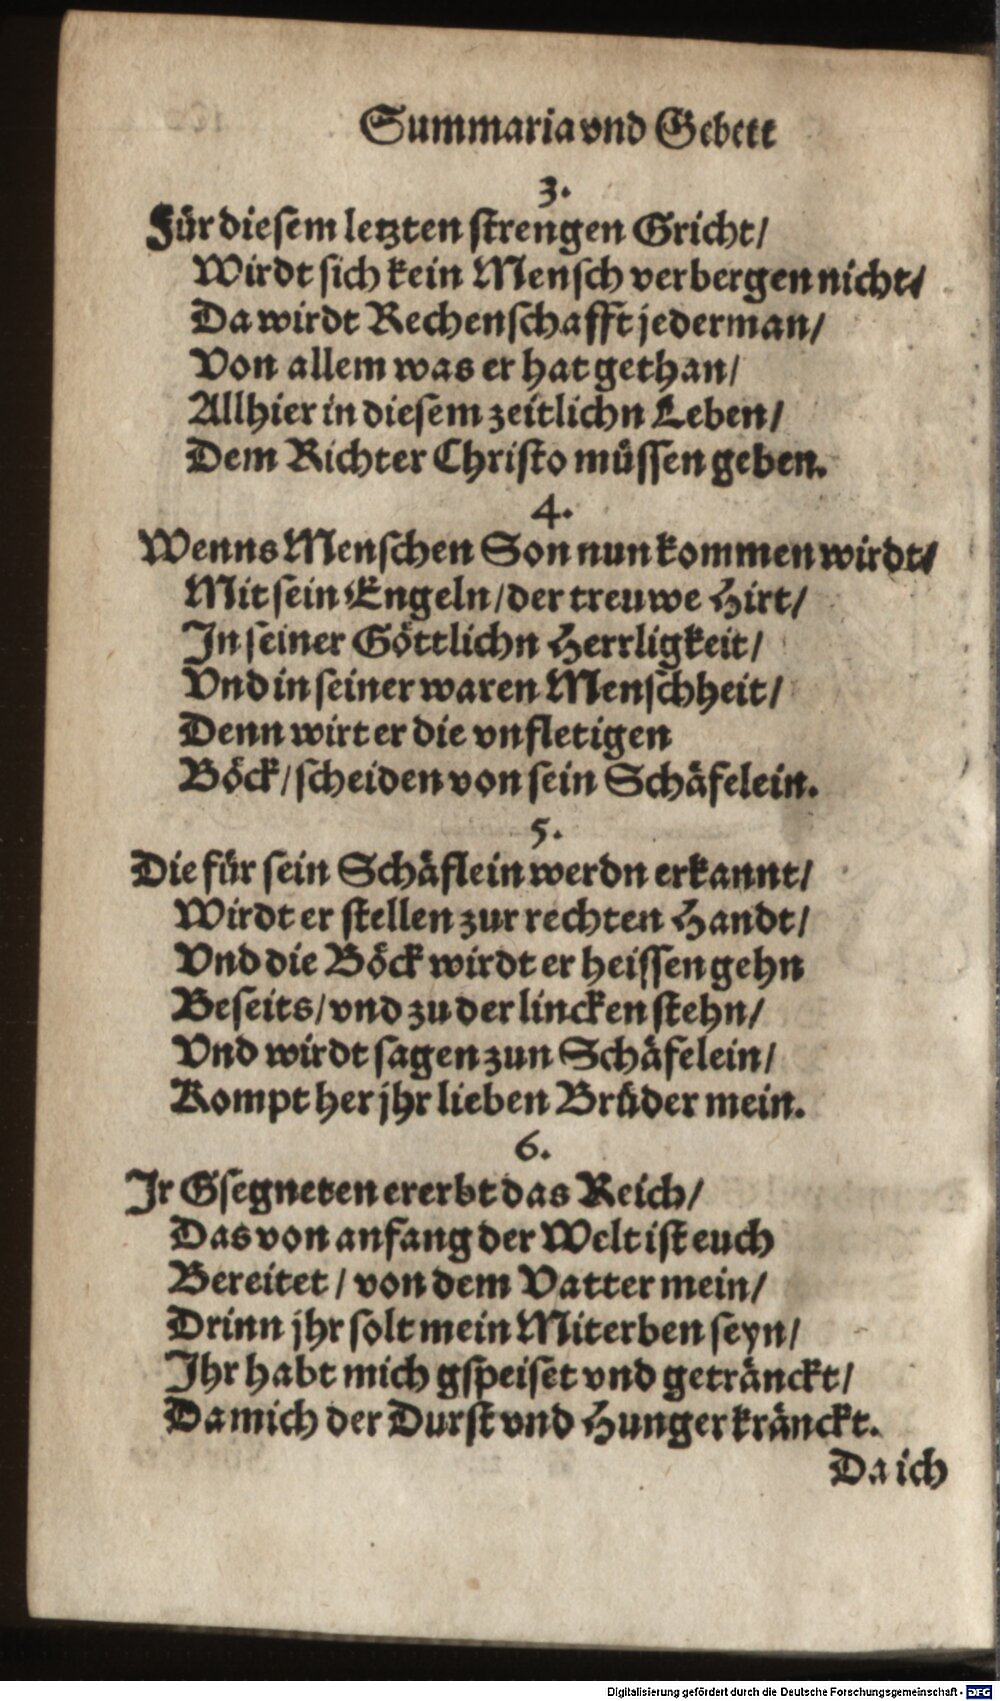 Summaria vnd Gebett
3.
Für diesem letzten strengen Gricht/
Wirdt sich kein Mensch verbergen nicht/
Da wirdt Rechenschafft jederman/
Von allem was er hat gethan/
Allhier in diesem zeitlichn Leben/
Dem Richter Christo müssen geben.
4.
Wenns Menschen Son nun kommen wirdt/
Mit sein Engeln/der treuwe Hirt/
In seiner Göttlichn Herrligkeit/
Vnd in seiner waren Menschheit/
Denn wirt er die vnfletigen
Böck/scheiden von sein Schäfelein.
5.
Die für sein Schäflein werdn erkannt/
Wirdt er stellen zur rechten Handt/
Vnd die Böck wirdt er heissen gehn
Beseits/vnd zu der lincken stehn/
Vnd wirdt sagen zun Schäfelein/
Kompt her jhr lieben Brüder mein.
6.
Ir Gsegneten ererbt das Reich/
Das von anfang der Welt ist euch
Bereitet/von dem Vatter mein/
Drinn jhr solt mein Miterben seyn/
Ihr habt mich gspeiset vnd getränckt/
Da mich der Durst vnd Hunger kränckt.
Da ich
Digitalisierung gefördert durch die Deutsche Forschungsgemeinschaft - DFG